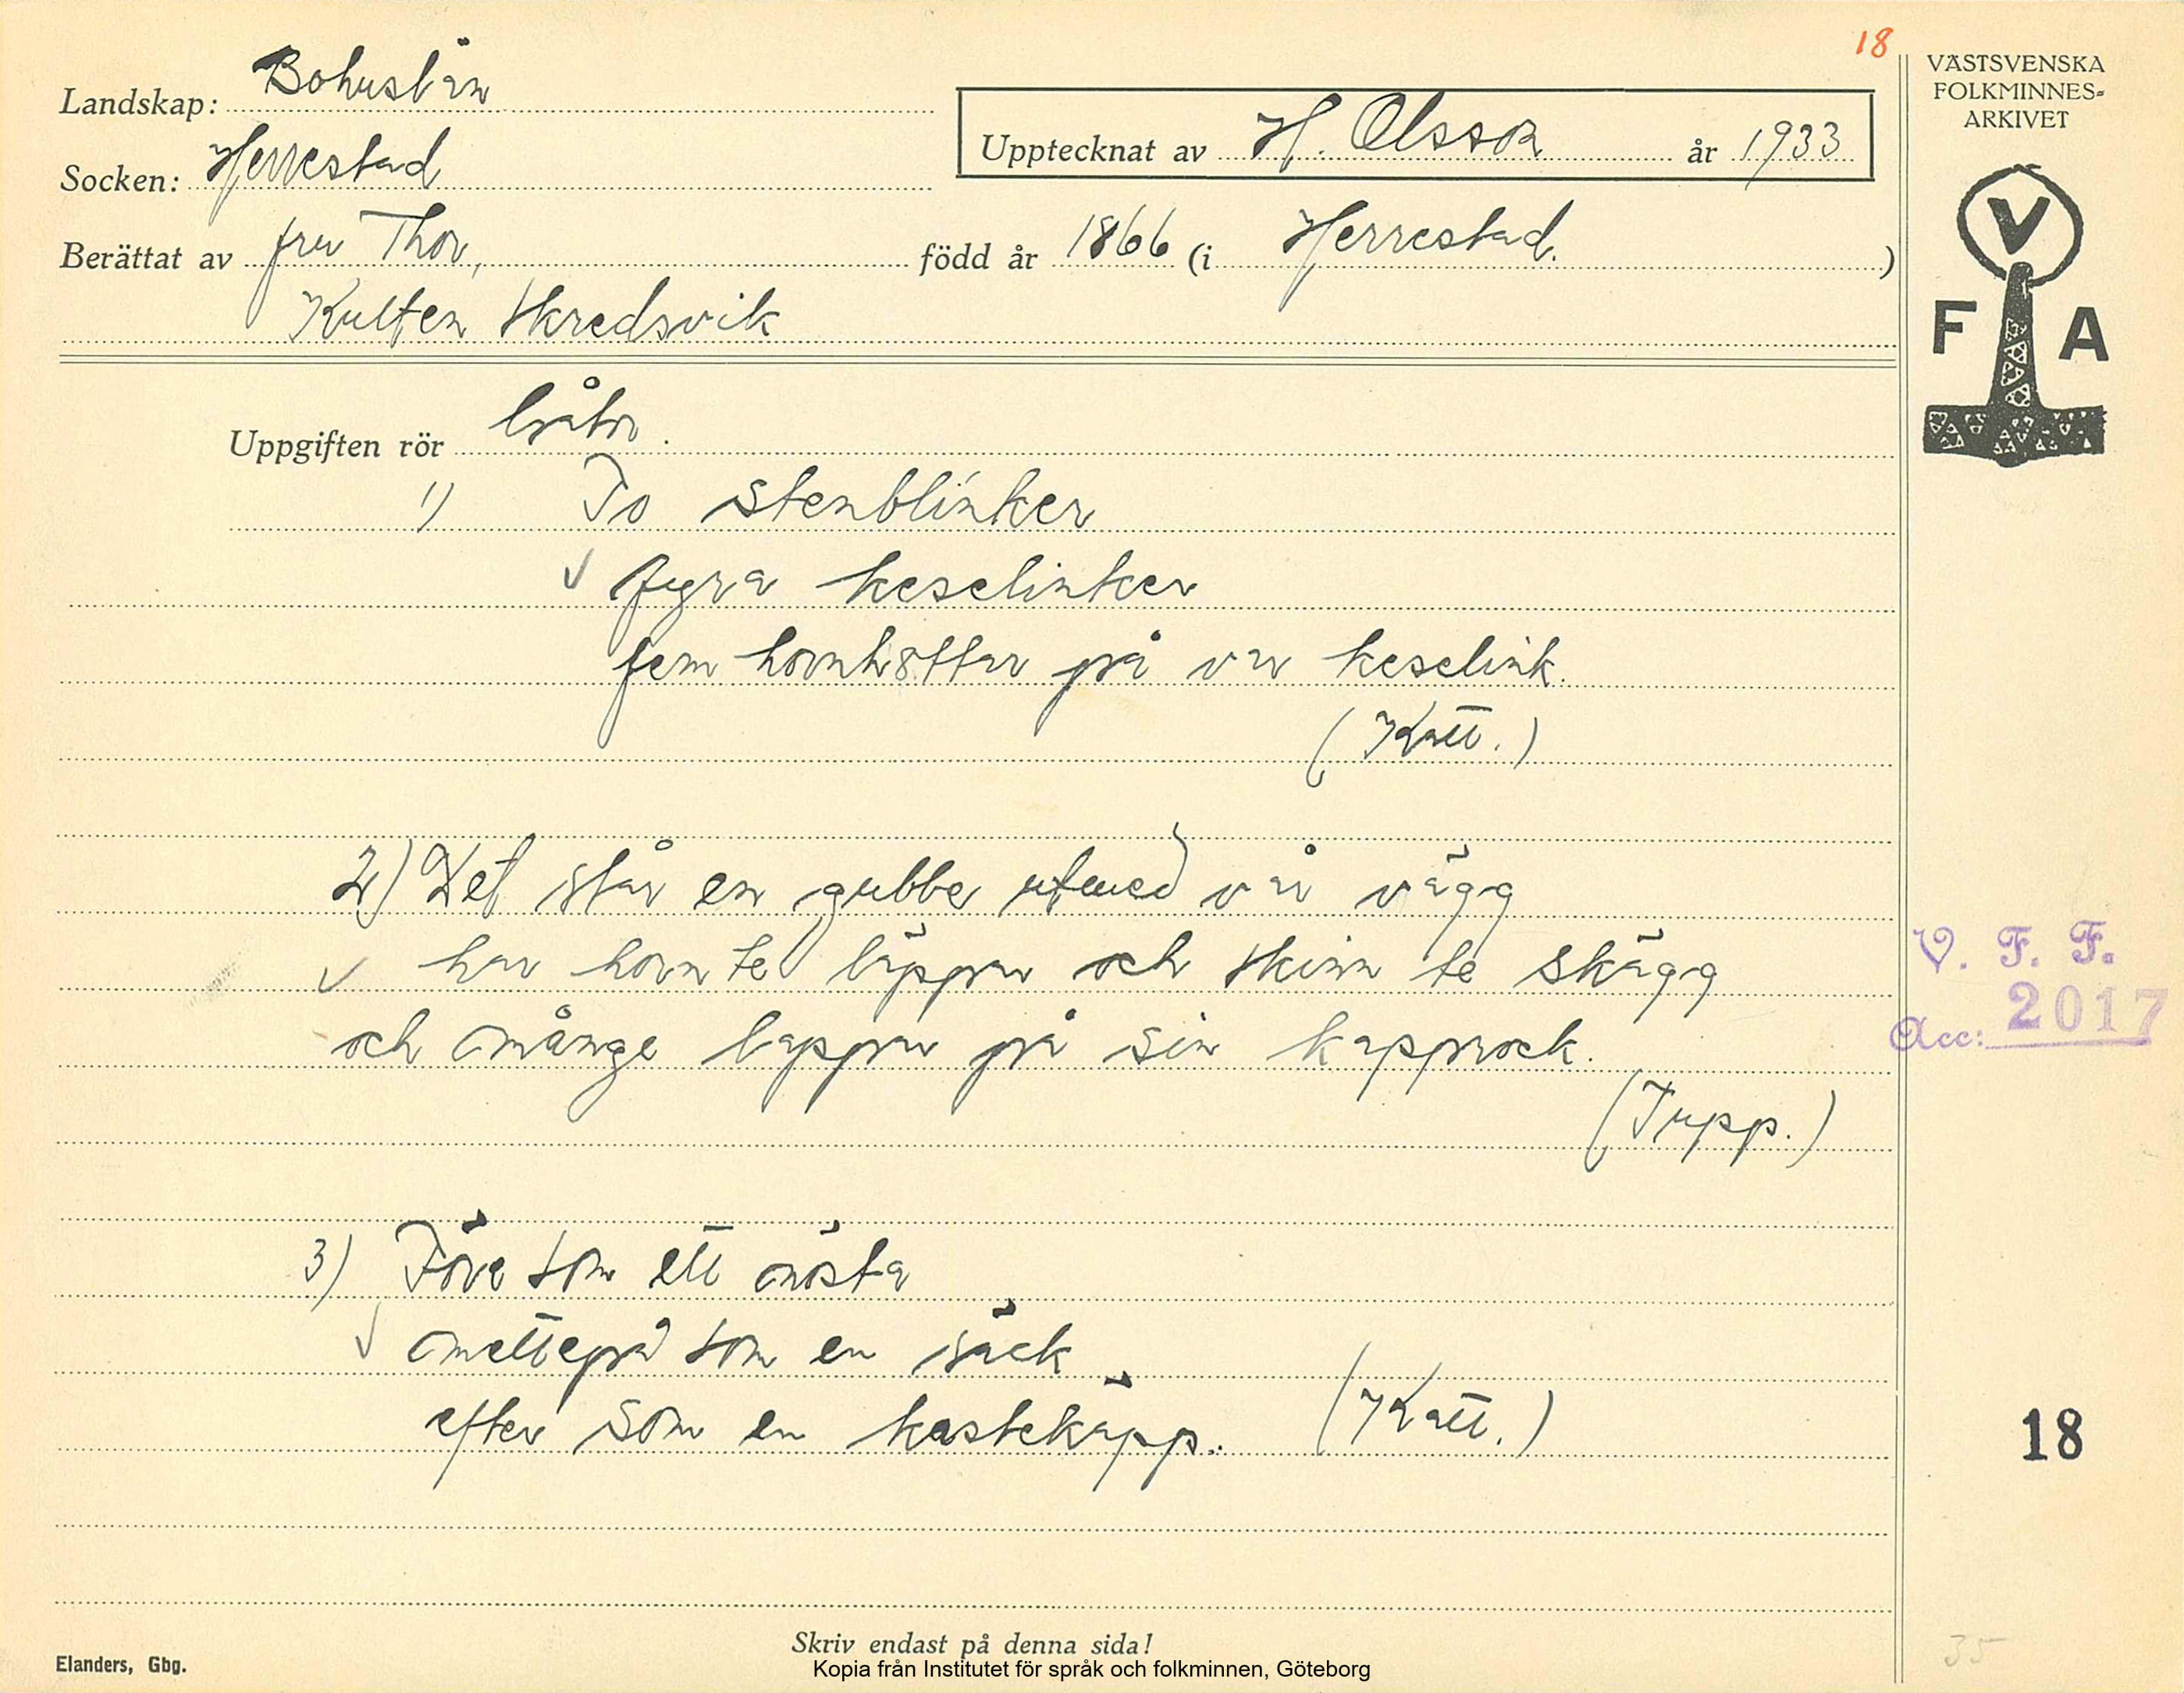 18
Landskap: Bohuslän
Socken: Herrestad
Upptecknat av H. Olsson år 1933
Berättat av fru Thor, född år 1866 (i Herrestad.)
Kulten Skredsvik
VÄSTSVENSKA
FOLKMINNES=
ARKIVET
V
F A
Uppgiften rör gåtor.
1) To stenblinker
fyra keselinker
fem hornhottar på var keselink.
(Katt.)
2) Det står en gubbe utmed vår vägg
har horn te läppar och skinn te skägg
och månge lappar på sin kapprock.
(Tupp.)
V. F. F.
Acc: 2017
3) Före som ett nösta
mettepå som en säck
efter som en kastekäpp. (Katt.)
18
35
Skriv endast på denna sida!
Elanders, Gbg.
Kopia från Institutet för språk och folkminnen, Göteborg